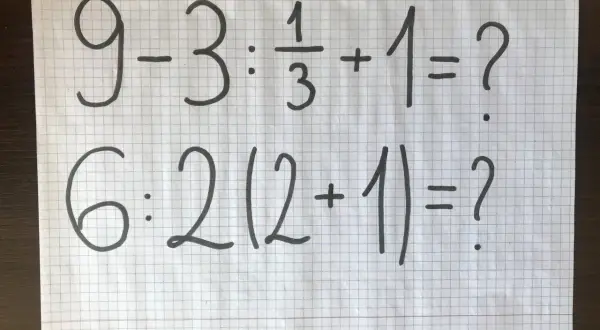 9-3:1/3+1=?
6:2(2+1)=?